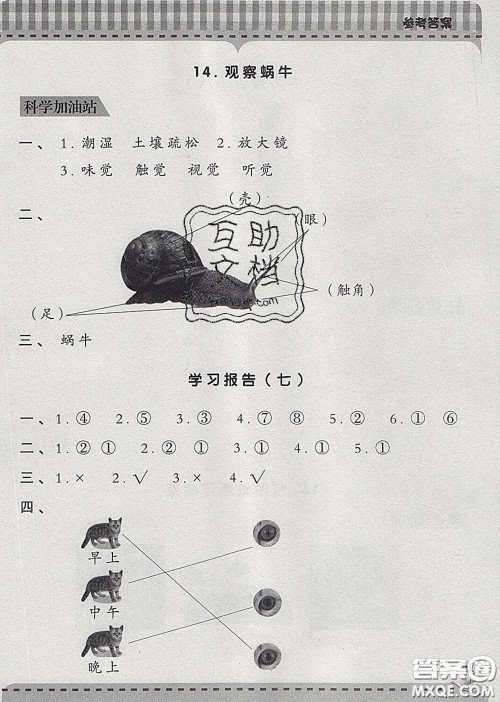 参考答案
14. 观察蜗牛
科学加油站
一、 1. 潮湿 土壤疏松 2. 放大镜
3. 味觉 触觉 视觉 听觉
二、
(壳)
(眼)
(足)
(触角)
互助
文档
三、 蜗牛
学习报告(七)
一、1. ④ 2. ⑤ 3. ③ 4. ⑦ ⑧ 5. ② 6. ① ⑥
二、1. ② ① 2. ② ① 3. ① 4. ① 5. ①
三、1. × 2. √ 3. × 4. √
四、
早上
中午
晚上
答案圈
MXQE.COM